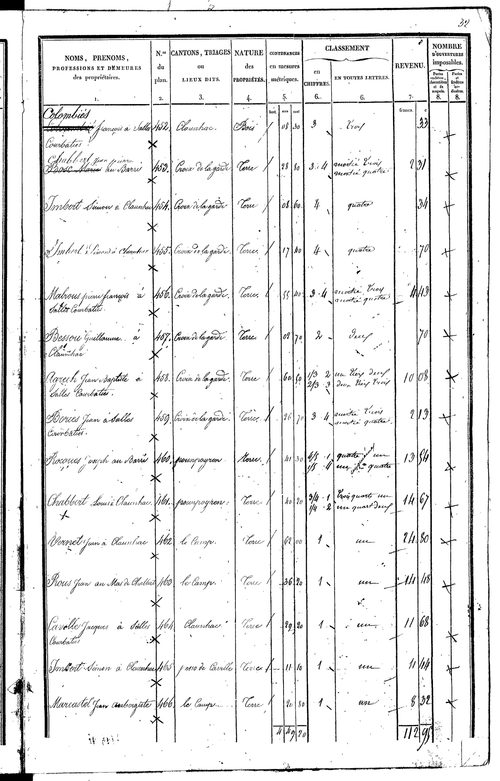 32
NOMS, PRENOMS,
PROFESSIONS ET DEMEURES
des propriétaires.
N.os
du
plan.
CANTONS, TRIAGES
ou
LIEUX DITS.
NATURE
des
PROPRIÉTÉS.
CONTENANCES
en mesures
métriques.
CLASSEMENT
en
CHIFFRES.
EN TOUTES LETTRES.
REVENU.
NOMBRE
D'OUVERTURES
imposables.
1. 2. 3. 4. 5. 6. 6. 7. 8. 8.
francs. c
Colombiés
françois a Salles 452. Claunhac. Bois 08 30 3 trois 33
Courbatiés
Chabbert
au Barri 453. Croix de la garde. Terre 28 80 3.4 moitié trois 2 31
moitié quatre
Imbert Simon a Claunhac 454. Croix de la garde. Terre 08 60 4 quatre 34
Imbert Simon a Claunhac 455. Croix de la garde. Terre 17 40 4 quatre 70
Mabrous françois à 456. Croix de la garde. Terre. 55 40 3.4 moitié trois 4 43
Salles Courbatiés moitié quatre
Bessou Guillaume à 457. Croix de la garde. Terre 08 70 2 deux 70
Claunhac
Agrech Jean Baptiste a 458. Croix de la garde. Terre 60 60 1/3 2 un tiers deux 10 08
Salles Courbatiés. 2/3 3 deux tiers trois
Jean a Salles 459. Croix de la garde. Terre 26 70 3.4 moitié trois 2 13
Courbatiés moitié quatre
joseph au Barri 460. pouspayron Terre 41 30 4/5 1 13 54
1/5 4 quatre
Chabbert Louis a Claunhac. 461. pouspayron. Terre 40 20 3/4 1 trois quarts un 14 67
1/4 2 un quart deux
Vernet Jean a Claunhac 462. le Camp. Terre 62 00 1 un 24 80
Rous Jean au Mas de 463. le Camp. Terre 36 20 1 un 14 48
Jacques à Salles 464. Claunhac Terre 29 20 1 un 11 68
Courbatiés
Imbert Simon a Claunhac 465. Terre 11 10 1 un 4 44
Marcastel Jean 466. le Camp. Terre 20 80 1 un 8 32
4 49 20 112 95